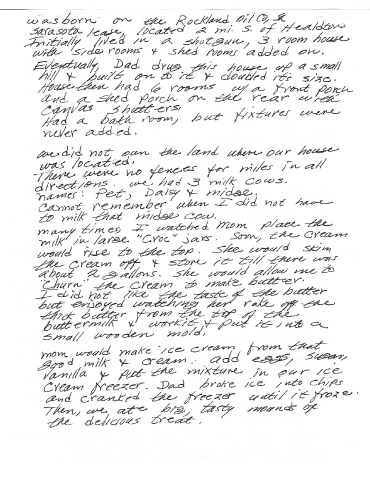 was born on the Rockland Oil Co, &
Sarasota lease, located 2 mi. S. of Healdton
Initially lived in a shotgun, 3 room house
with side rooms & shed rooms added on.
Eventually, Dad drug this house up a small
hill & built on to it & doubled its size.
House then had 6 rooms w/a front porch
and a shed porch on the rear with
Canvas shutters.
Had a bath room, but fixtures were
never added.
we did not own the land where our house
was located.
There were no fences for miles in all
directions. we had 3 milk cows.
names: Pet, Daisy & midge.
Cannot remember when I did not have
to milk that midge cow.
many times I watched mom place the
milk in large "Croc" jars. Soon, the cream
would rise to the top. She would skim
the cream off & store it till there was
about 2 gallons. She would allow me to
"Churn" the cream to make butter.
I did not like the taste of the butter
but enjoyed watching her rake off the
thick butter from the top of the
buttermilk & work it & put it into a
small wooden mold.
mom would make ice cream from that
good milk & cream. add eggs, sugar,
vanilla & put the mixture in our ice
cream freezer. Dad broke ice into chips
and cranked the freezer until it froze.
Then, we ate big, tasty mounds of
the delicious treat.